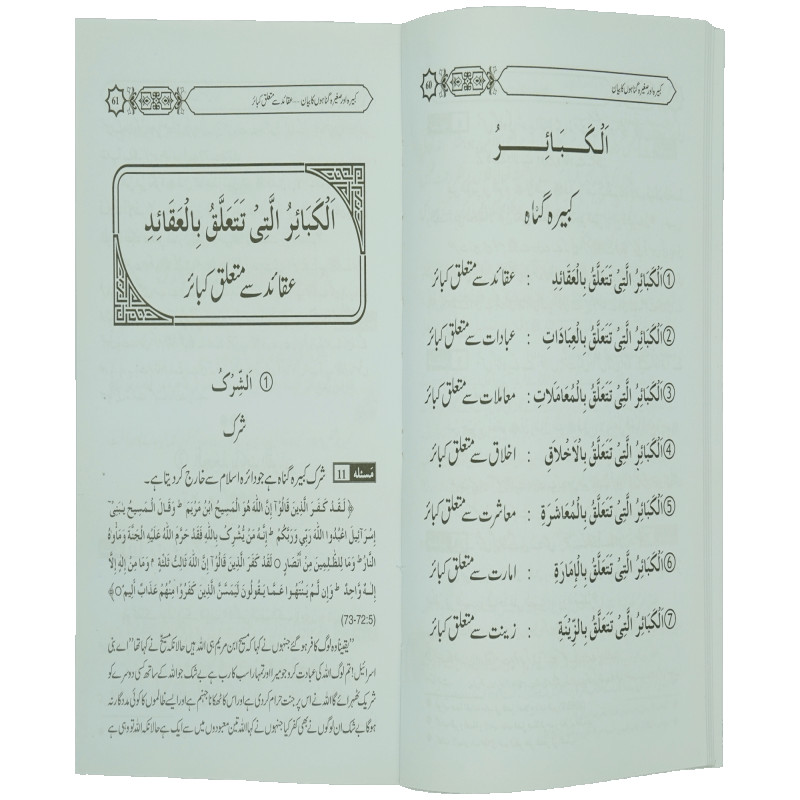 60
کبیرہ اور صغیرہ گناہوں کا بیان
اَلْكَبَـــائِـــرُ
کبیرہ گناہ
① اَلْكَبَائِرُ الَّتِىْ تَتَعَلَّقُ بِالْعَقَائِدِ : عقائد سے متعلق کبائر
② اَلْكَبَائِرُ الَّتِىْ تَتَعَلَّقُ بِالْعِبَادَاتِ : عبادات سے متعلق کبائر
③ اَلْكَبَائِرُ الَّتِىْ تَتَعَلَّقُ بِالْمُعَامَلَاتِ : معاملات سے متعلق کبائر
④ اَلْكَبَائِرُ الَّتِىْ تَتَعَلَّقُ بِالْاَخْلَاقِ : اخلاق سے متعلق کبائر
⑤ اَلْكَبَائِرُ الَّتِىْ تَتَعَلَّقُ بِالْمُعَاشَرَةِ : معاشرت سے متعلق کبائر
⑥ اَلْكَبَائِرُ الَّتِىْ تَتَعَلَّقُ بِالْاِمَارَةِ : امارت سے متعلق کبائر
⑦ اَلْكَبَائِرُ الَّتِىْ تَتَعَلَّقُ بِالزِّيْنَةِ : زینت سے متعلق کبائر
61
کبیرہ اور صغیرہ گناہوں کا بیان ... عقائد سے متعلق کبائر
اَلْكَبَائِرُ الَّتِىْ تَتَعَلَّقُ بِالْعَقَائِدِ
عقائد سے متعلق کبائر
① اَلشِّرْكُ
شرک
مسئلہ 11 شرک کبیرہ گناہ ہے جو دائرہ اسلام سے خارج کر دیتا ہے۔
﴿ لَقَدْ كَفَرَ الَّذِيْنَ قَالُوْٓا اِنَّ اللّٰهَ هُوَ الْمَسِيْحُ ابْنُ مَرْيَمَ ط وَقَالَ الْمَسِيْحُ يٰبَنِىْٓ
اِسْرَآئِيْلَ اعْبُدُوا اللّٰهَ رَبِّىْ وَرَبَّكُمْ ط اِنَّهٗ مَنْ يُّشْرِكْ بِاللّٰهِ فَقَدْ حَرَّمَ اللّٰهُ عَلَيْهِ الْجَنَّةَ وَمَاْوٰهُ
النَّارُ ط وَمَا لِلظّٰلِمِيْنَ مِنْ اَنْصَارٍ ○ لَقَدْ كَفَرَ الَّذِيْنَ قَالُوْٓا اِنَّ اللّٰهَ ثَالِثُ ثَلٰثَةٍ وَمَا مِنْ اِلٰهٍ اِلَّآ
اِلٰهٌ وَّاحِدٌ ط وَاِنْ لَّمْ يَنْتَهُوْا عَمَّا يَقُوْلُوْنَ لَيَمَسَّنَّ الَّذِيْنَ كَفَرُوْا مِنْهُمْ عَذَابٌ اَلِيْمٌ ○﴾
(73-72:5)
”یقیناً وہ لوگ کافر ہو گئے جنہوں نے کہا کہ مسیح ابن مریم ہی اللہ ہیں حالانکہ مسیح نے کہا تھا ”اے بنی
اسرائیل! تم لوگ اللہ کی عبادت کرو جو میرا اور تمہارا سب کا رب ہے بے شک جو اللہ کے ساتھ کسی دوسرے کو
شریک ٹھہرائے گا اللہ نے اس پر جنت حرام کر دی ہے اور اس کا ٹھکانا جہنم ہے اور ایسے ظالموں کا کوئی مددگار نہ
ہوگا بے شک ان لوگوں نے بھی کفر کیا جنہوں نے کہا اللہ تین معبودوں میں سے ایک ہے حالانکہ اللہ تو وہی ہے